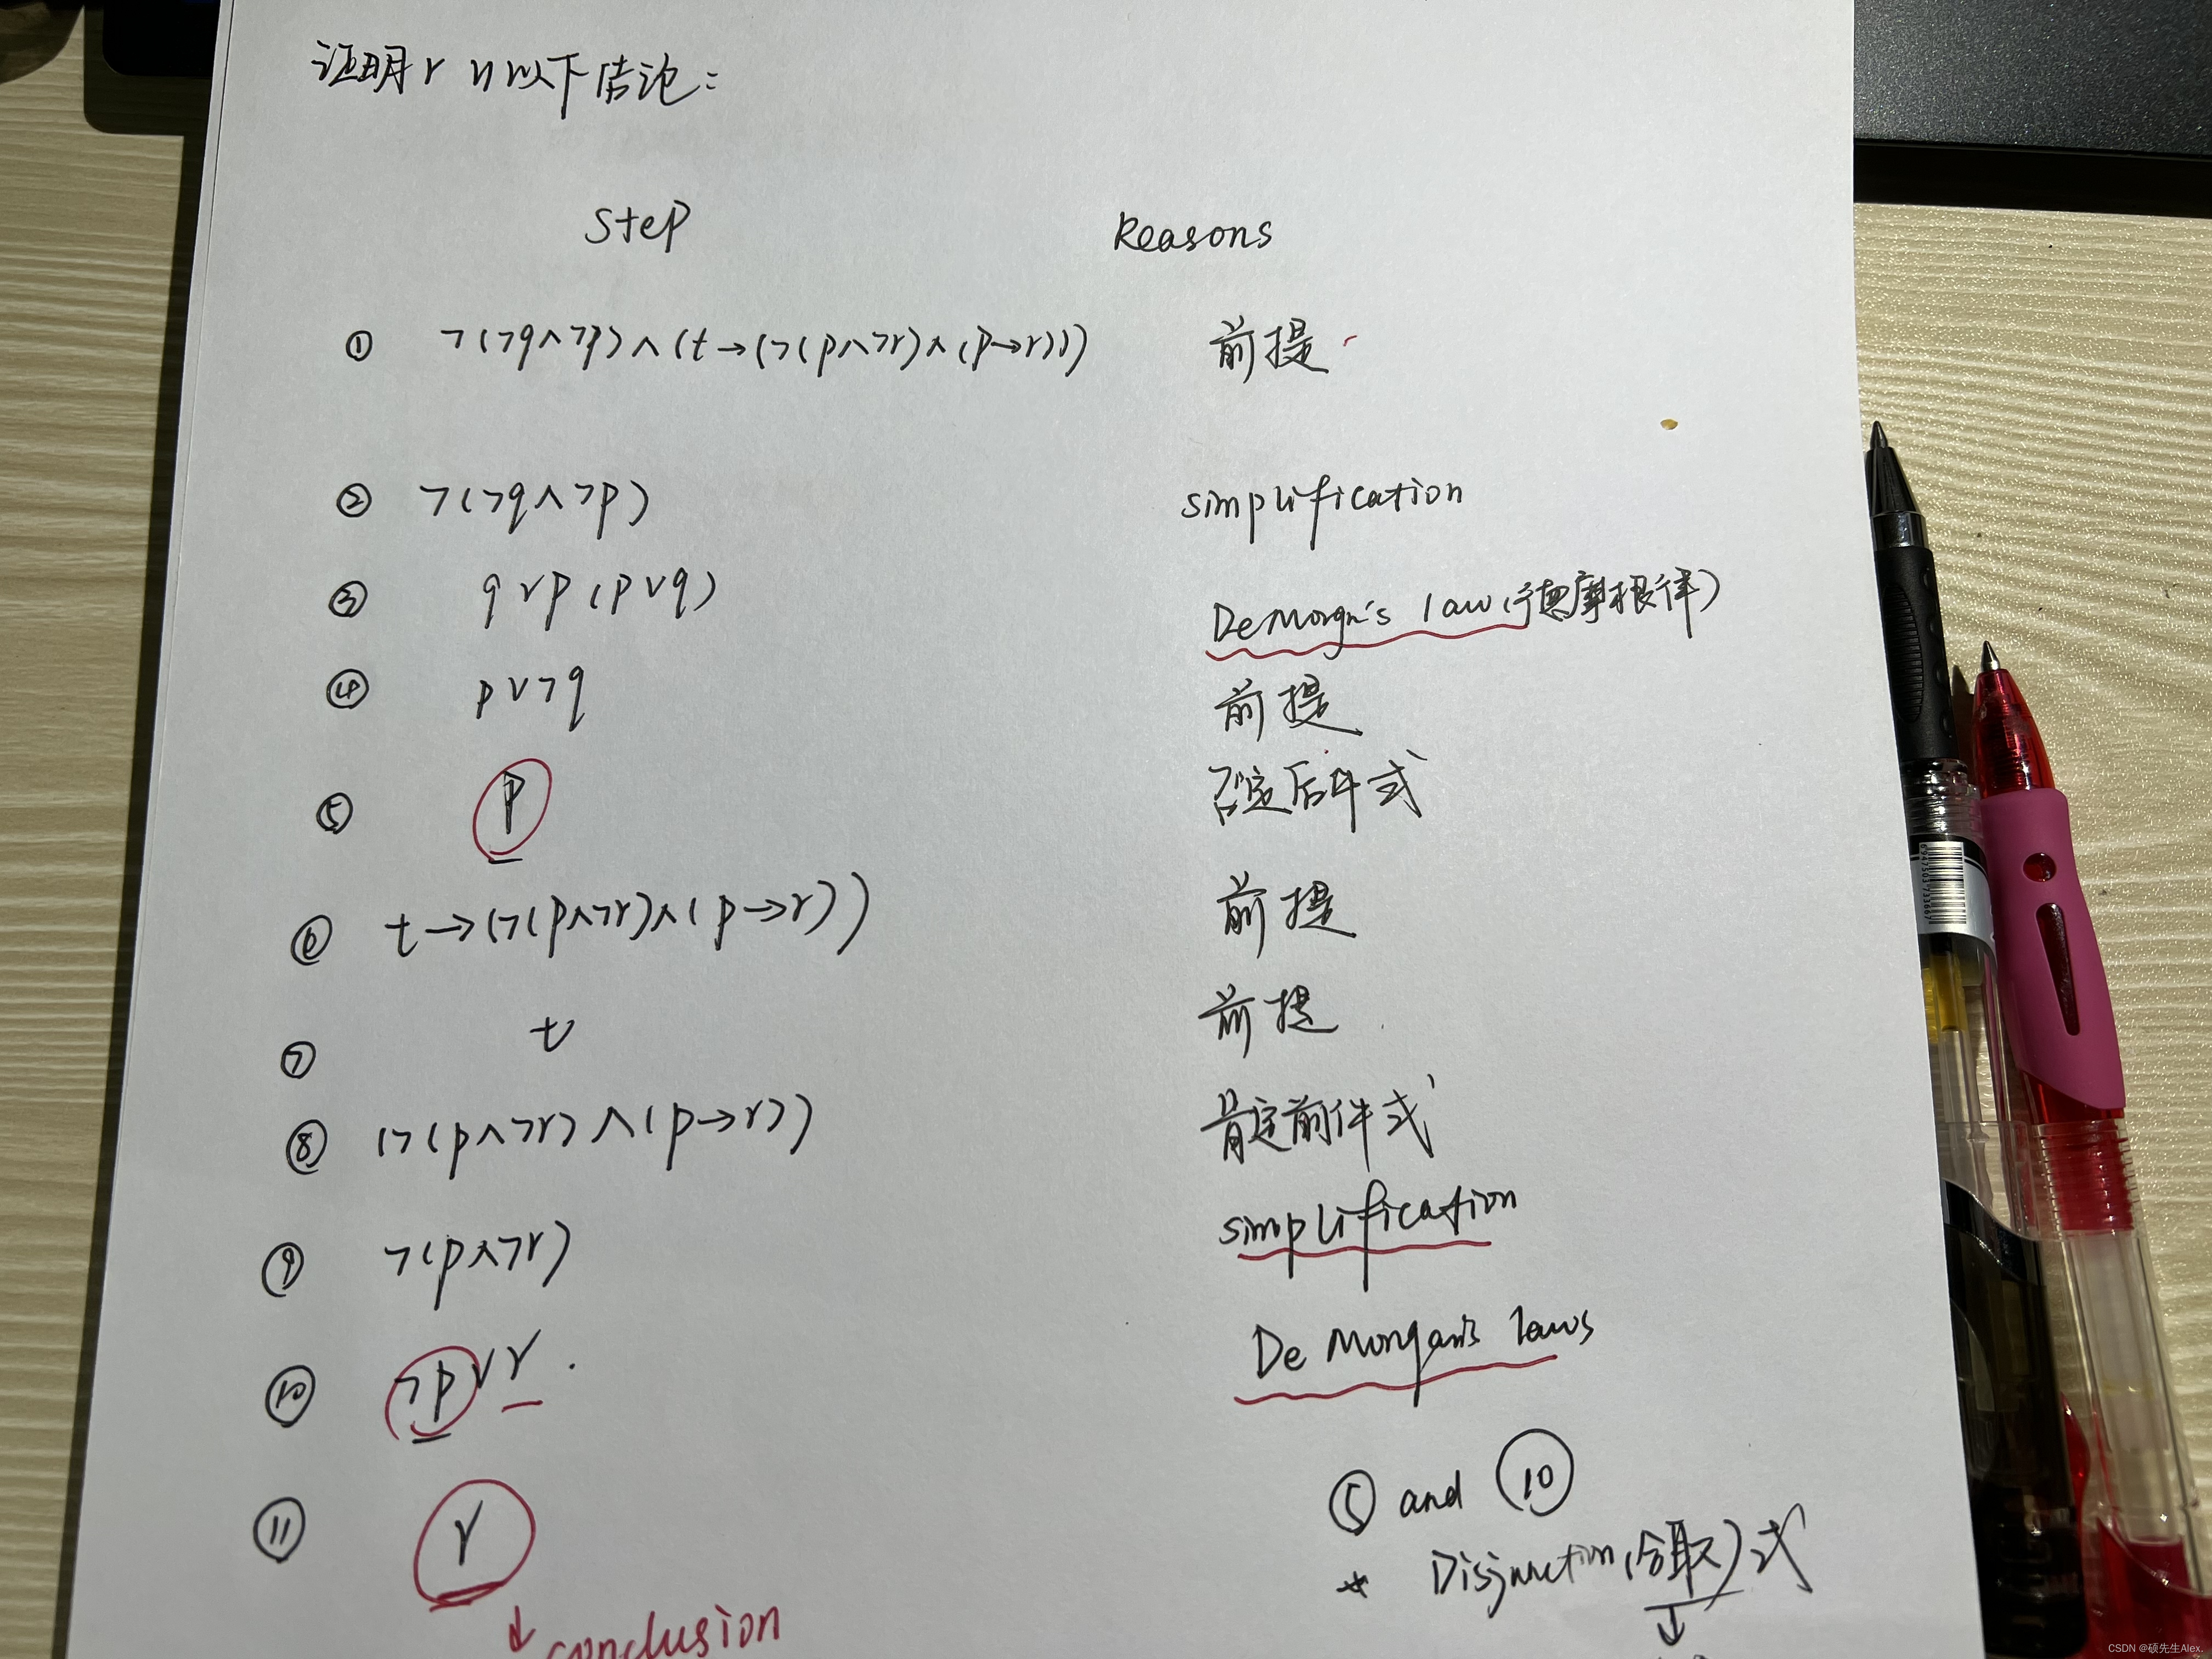 证明r 以下结论:
Step Reasons
① ¬(¬q∧¬p)∧(t→(¬(p∧¬r)∧(p→r))) 前提
② ¬(¬q∧¬p) simplification
③ q∨p(p∨q) DeMorgn's law(德摩根律)
④ p∨¬q 前提
⑤ P 否定后件式
⑥ t→(¬(p∧¬r)∧(p→r)) 前提
⑦ t 前提
⑧ (¬(p∧¬r)∧(p→r)) 肯定前件式
⑨ ¬(p∧¬r) simplification
⑩ ¬p∨r. De Morgan's laws
⑪ r ⑤ and ⑩
* Disjunction(合取)式
↓ conclusion
↓
6947503733667
CSDN @硕先生Alex.